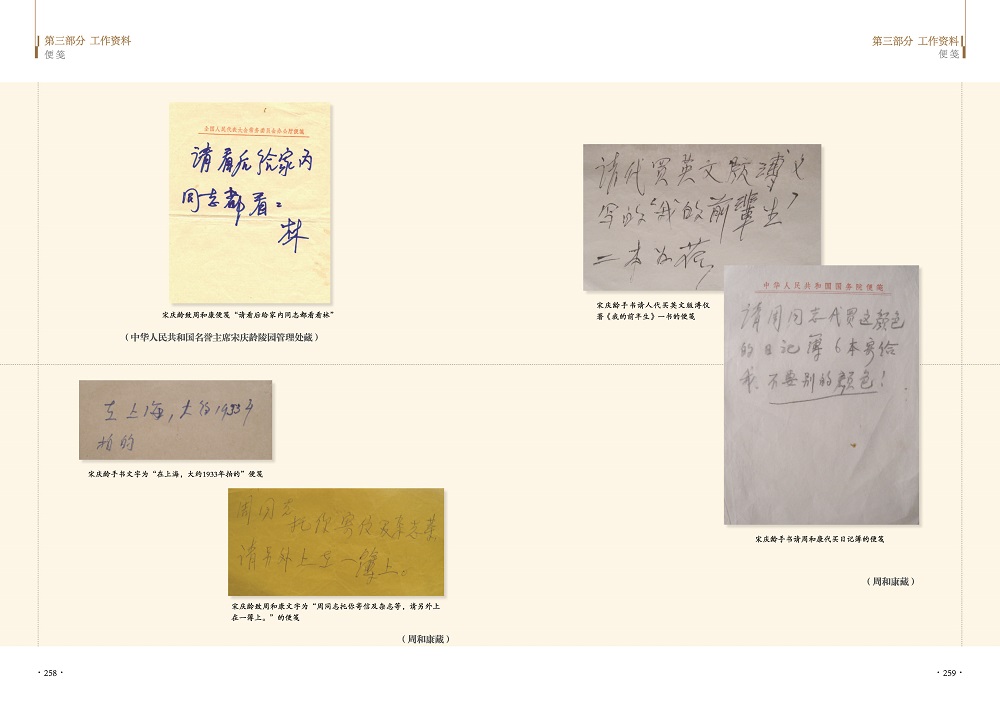 第三部分 工作资料
便笺
全国人民代表大会常务委员会办公厅便笺
请看后给家内
同志都看：
林
宋庆龄致周和康便笺“请看后给家内同志都看看林”
（中华人民共和国名誉主席宋庆龄陵园管理处藏）
在上海，大约1933年
拍的
宋庆龄手书文字为“在上海，大约1933年拍的”便笺
周同志
托你寄信及杂志等
请另外上在一簿上。
宋庆龄致周和康文字为“周同志托你寄信及杂志等，请另外上
在一簿上。”的便笺
（周和康藏）
·258·
第三部分 工作资料
便笺
请代买英文版溥仪
写的“我的前半生”
二本为荷，
宋庆龄手书请人代买英文版溥仪
著《我的前半生》一书的便笺
中华人民共和国国务院便笺
请周同志代买这颜色
的日记簿6本寄给
我。不要别的颜色！
宋庆龄手书请周和康代买日记簿的便笺
（周和康藏）
·259·